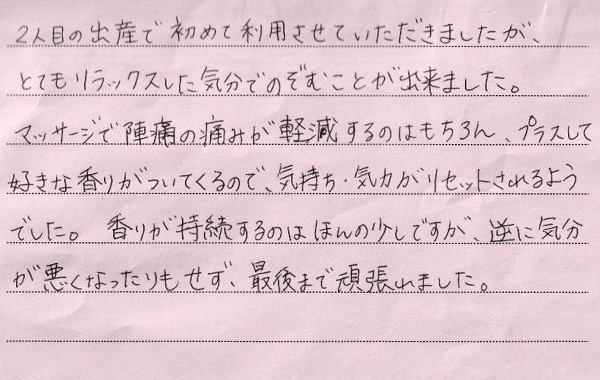 2人目の出産で初めて利用させていただきましたが、
とてもリラックスした気分でのぞむことが出来ました。
マッサージで陣痛の痛みが軽減するのはもちろん、プラスして
好きな香りがついてくるので、気持ち・気力がリセットされるよう
でした。 香りが持続するのはほんの少しですが、逆に気分
が悪くなったりもせず、最後まで頑張れました。